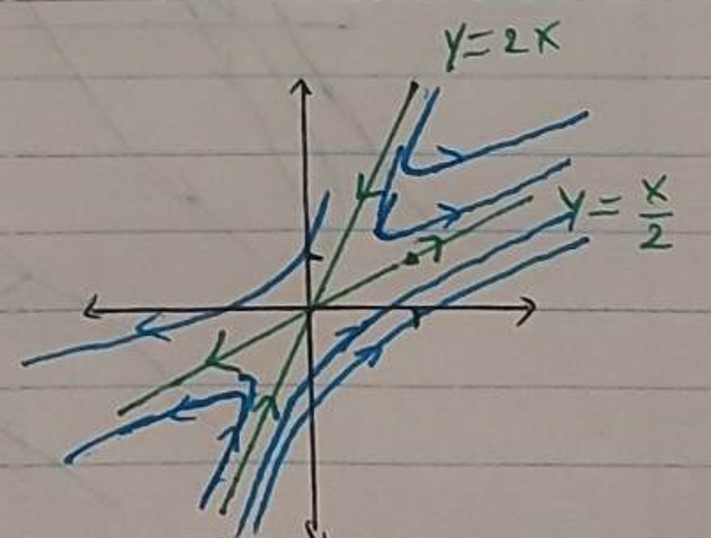 y=2x
y=x/2